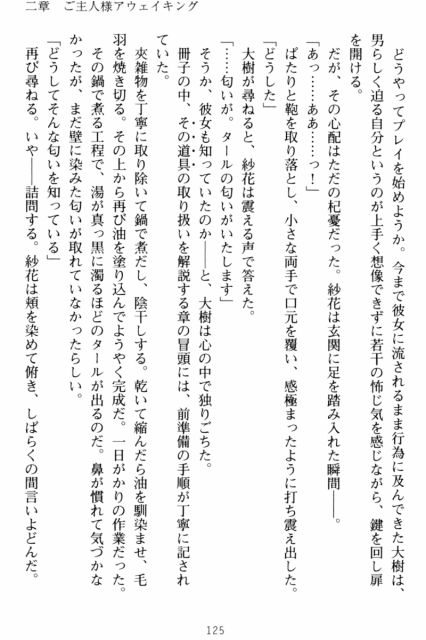 二章　ご主人様アウェイキング
　どうやってプレイを始めようか。今まで彼女に流されるまま行為に及んできた大樹は、
男らしく迫る自分というのが上手く想像できずに若干の怖じ気を感じながら、鍵を回し扉
を開ける。
　だが、その心配はただの杞憂だった。紗花は玄関に足を踏み入れた瞬間――。
「あっ……ああ……っ！」
　ぱたりと鞄を取り落とし、小さな両手で口元を覆い、感極まったように打ち震え出した。
「どうした」
　大樹が尋ねると、紗花は震える声で答えた。
「……匂いが。タールの匂いがいたします」
　そうか、彼女も知っていたのか――と、大樹は心の中で独りごちた。
　冊子の中、その道具の取り扱いを解説する章の冒頭には、前準備の手順が丁寧に記され
ていた。
　夾雑物を丁寧に取り除いて鍋で煮だし、陰干しする。乾いて縮んだら油を馴染ませ、毛
羽を焼き切る。その上から再び油を塗り込んでようやく完成だ。一日がかりの作業だった。
　その鍋で煮る工程で、湯が真っ黒に濁るほどのタールが出るのだ。鼻が慣れて気づかな
かったが、まだ壁に染みた匂いが取れていなかったらしい。
「どうしてそんな匂いを知っている」
　再び尋ねる。いや――詰問する。紗花は頬を染めて俯き、しばらくの間言いよどんだ。
125